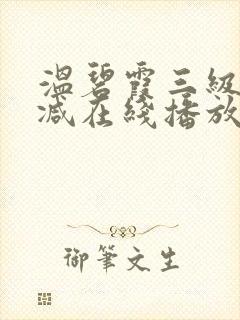 温碧霞三级
减在线播放
御笔文生